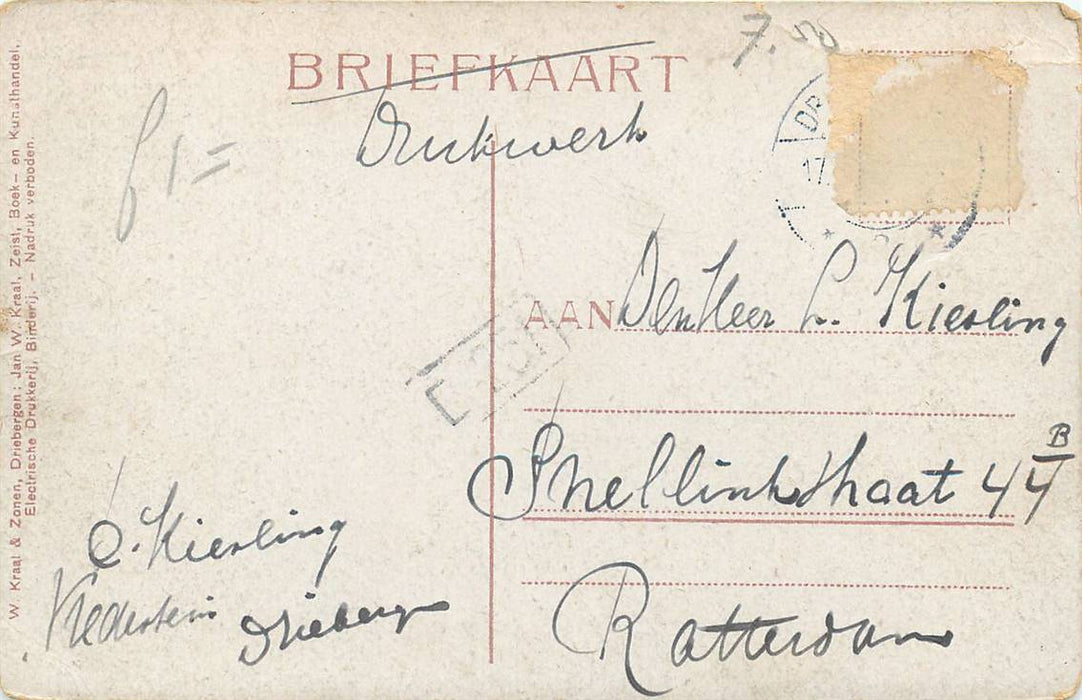 7.50
BRIEFKAART
Drukwerk
f 1 =
DR
17.
AAN Den Heer L. Kiesling
Snellinkstraat 44 B
Rotterdam
C. Kiesling
Driebergen
W. Kraal & Zonen, Driebergen; Jan W. Kraal, Zeist, Boek- en Kunsthandel,
Electrische Drukkerij, Binderij. - Nadruk verboden.